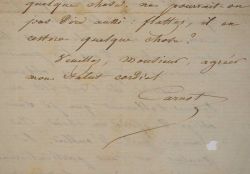 quelque chose. ne pourrait on
pas dire aussi : flattez, il en
restera quelque chose ?
Veuillez, Monsieur, agréer
mon salut cordial
Carnot